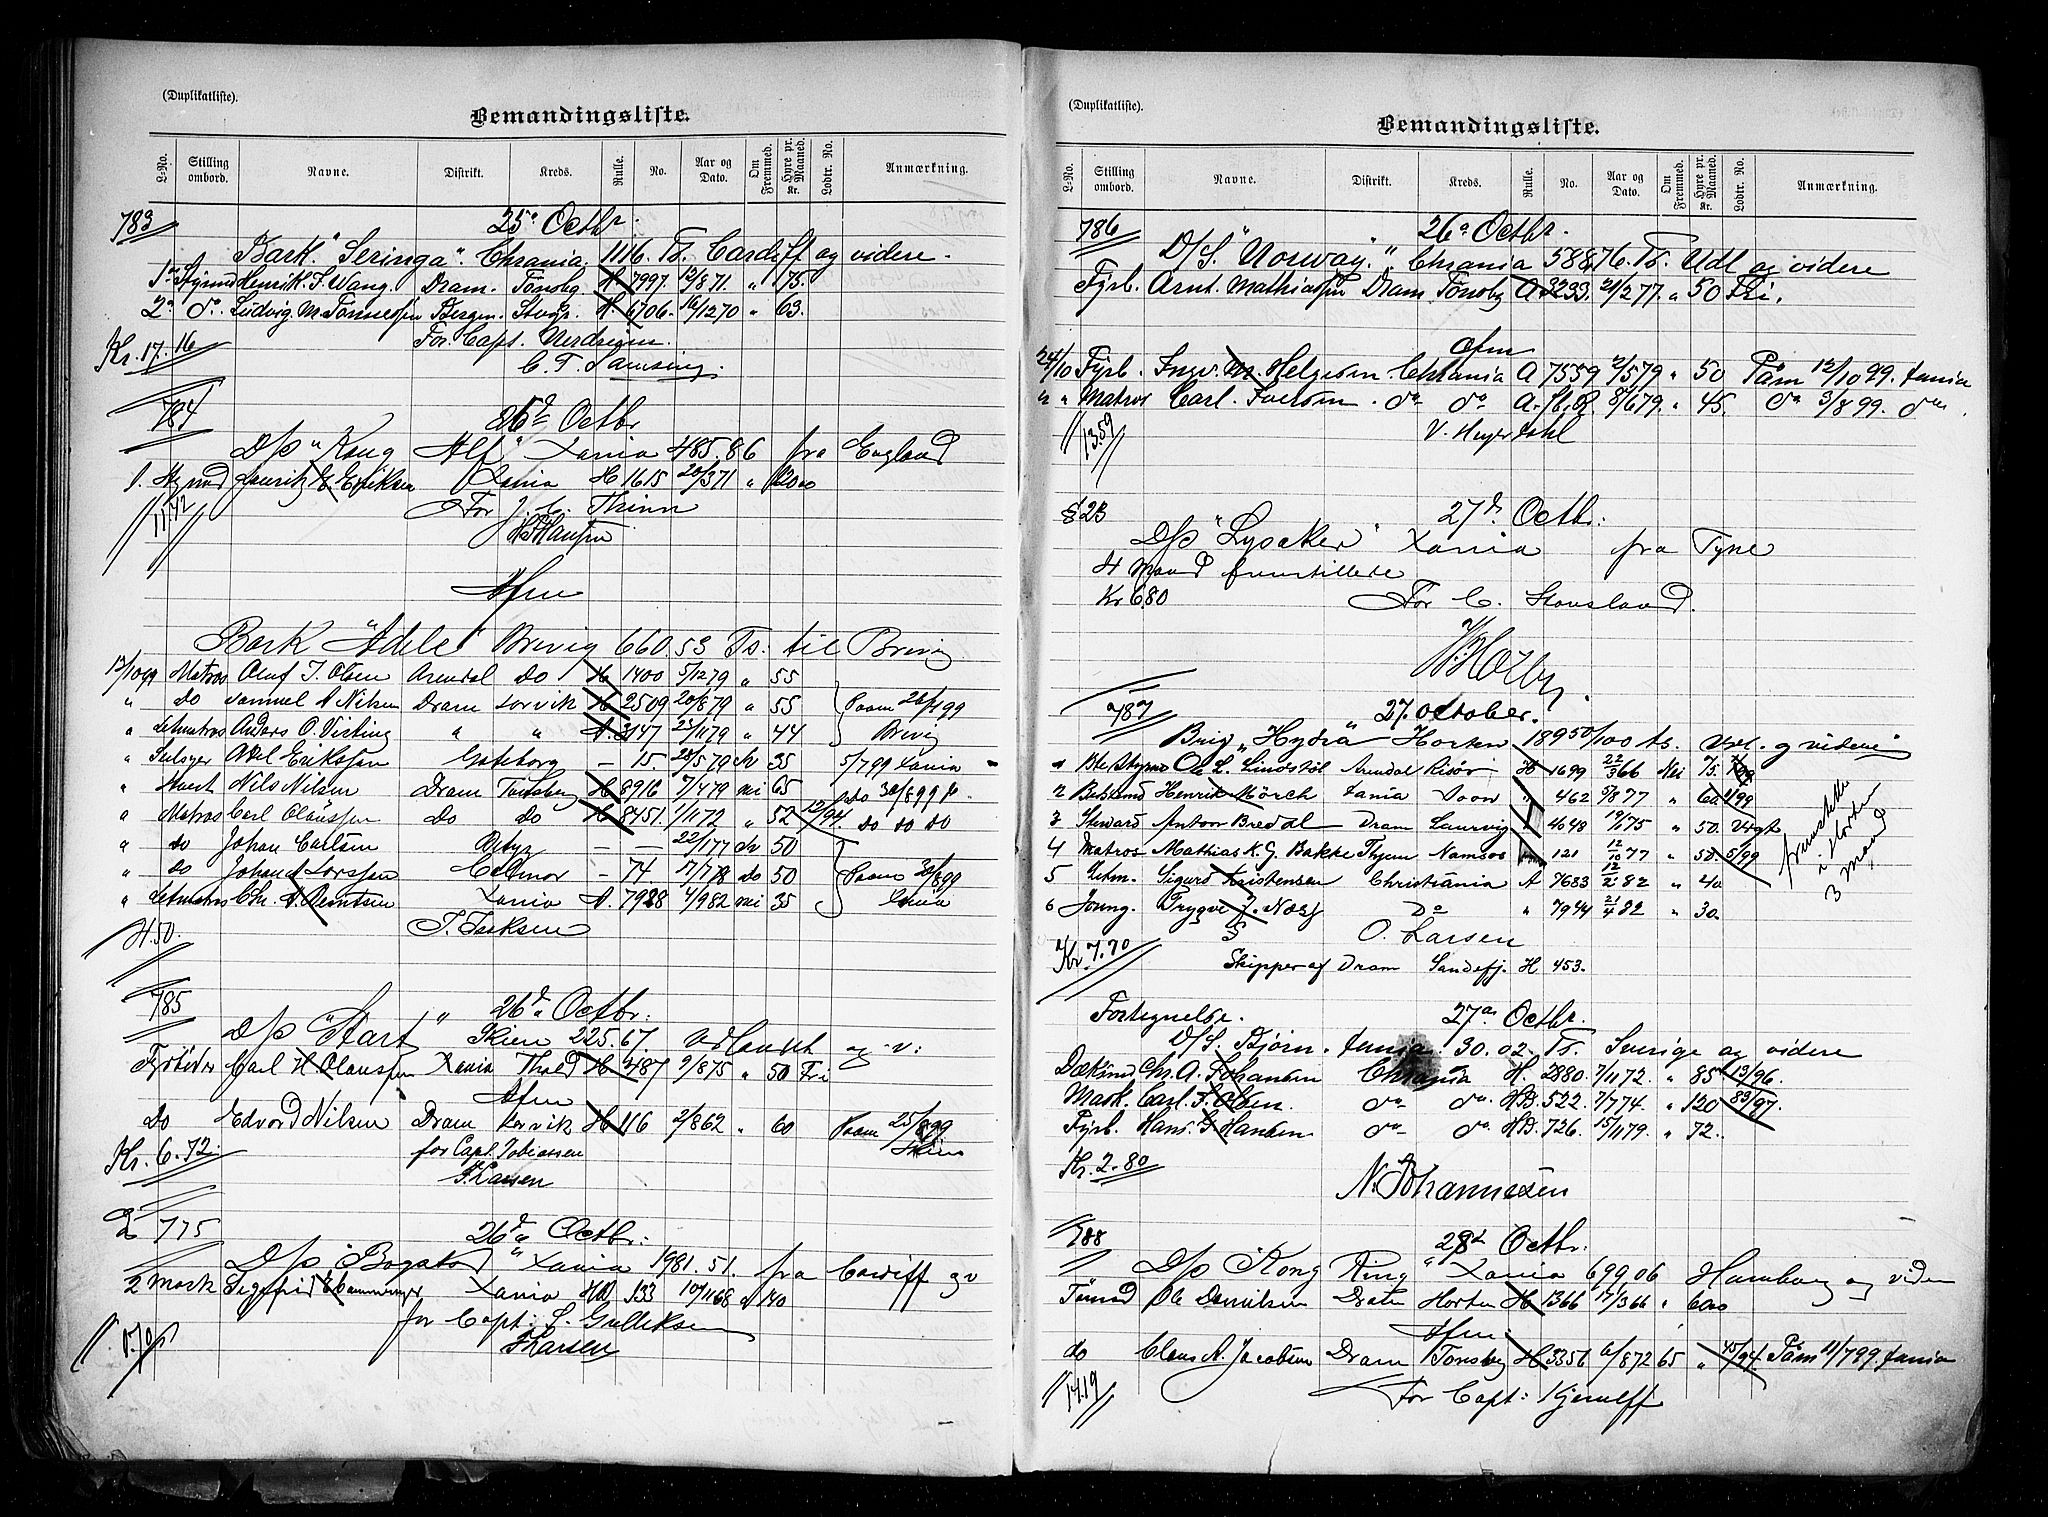 (Duplikatliste).
Bemandingsliste.
L-No. Stilling ombord. Navne. Distrikt. Kreds. Rulle. No. Aar og Dato. Om Fremmed. Hyre pr. Maaned. Kr. Lodtr. No. Anmærkning.
783 25de Octbr.
Bark. "Seringa". Chrania. 1116. Ts. Cardiff og videre.
1ste Styrmd Henrik. F. Wang. Dram. Tønsbg. H. 7997. 12/871. " 75.
2. do. Ludvig M. Bergen. Stavgr. H. 6706. 16/1270 " 63.
Kr. 17.16 For. Capt.
784 26d Octbr
D/p "Kong Alf" Xania 485.86 fra England
1. Stymd Lauritz E. Eriksen Xania H 1615 20/371 " 120 00
11.72 For J. C. Thinn
H. Hansen
Afm
Bark "Adele" Brevig 660.53 Ts. til Brevig
13/1099 Matros Oluf J. Olsen Arendal Do H 1400 5/1279 " 55
" Do Samuel A Nilsen Dram Larvik H 2509 20/879 " 55 Paam 26/499
" Letmatros Anders O. Visting " " A. 3147 23/1179 " 44 Brevig
" Axel Eriksen Gøteborg — 15 28/579 35 5/799 Xania
" Nils Nilsen Dram Tønsberg H 8916 7/479 nei 65 do 30/899 do
" Matros Carl Olaussen Do Do H 8451 1/1172 " 52 12/94. do do do
" do Johan Carlsen — — 22/177 50
" do Johan A Larssen — 74 17/778 do 50 Paam 30/899
" Letmatros Chr. A. Berntsen Xania A. 7928 4/982 nei 35 Xania
H.50.
785 26d Octbr.
D/p "Start" Skien 225.67 Udlandet og v:
Fyrbøder Carl H Olaussen Xania H 487 9/875 " 50 Fri
Afm
Do Edvard Nilsen Dram Larvik H 116 2/862 " 60 Paam 25/899
Kr. 6.72. for Capt. Tobiassen Skien
J. Larsen
775 26d Octbr.
D/p "Bogstad" Xania 1981.51. fra Cardiff og v
2 Mask Sigfrid Xania HD 533 10/1168 " 140
for Capt: S. Gulliksen
J Larsen
(Duplikatliste).
Bemandingsliste.
L-No. Stilling ombord. Navne. Distrikt. Kreds. Rulle. No. Aar og Dato. Om Fremmed. Hyre pr. Maaned. Kr. Lodtr. No. Anmærkning.
786 26de Octbr.
D/S. "Norway." Chrania 588,76. Ts. Udl og videre
Fyrb. Arnt. Mathiassen Dram Tønsbg A 3233. 21/277. " 50 Fri.
Afm
24/10 Fyrb. Ingv. M. Helgesen. Chrania A 7559 2/579 " 50 Påm 12/1099. Xania
" " Matros Carl. Iversen. do do A. 8/679. " 45. do 3/899. do
13.59 V. Heyerdahl
§ 23 27d Octbr:
D/p "Lysaker" Xania fra Tyne
4 Mand fremstillede
Kr 6.80 For C.
787 27. October.
Brig "Hydra" Horten 189 50/100 ts. Udl. og videre
1 Bte Styrmd Ole L. Lindstøl Arendal Risør H 1699 22/366 Nei 75.
2 Bestmd Henrik Mörch Xania " 462 5/877 " 60
3 Steward Anton Bredal Dram Laurvig " 4048 19/175 " 50. Vægt
4 Matros Mathias K. G. Bakke Thjem Namsos 121 12/1077 " 50. 5/99
5 Letm. Sigurd Kristensen Christiania A 7683 12/282 " 40
6 Joung. Trygve J. Næss Do " 7944 21/482 " 30.
fremstillet i Horten 3 mand
Kr. 7.70 O. Larsen
Skipper af Dram Sandefj. H 453.
Fortegnelse. 27de Octbr.
D/S. Bjørn. Xania. 30.02. Ts. Sverige og videre
Dæksmd Chr. A. Johansen Chrania H. 2880. 7/1172. " 85 13/96.
Mask. Carl. F. Olsen. do do. HD. 522. 7/774. " 120 83/97.
Fyrb. Hans. G Hansen do do. HD. 726. 15/1179. " 72.
Kr. 2.80 N. Johannesen
788 28d Octbr.
D/p "Kong Ring" Xania 699,06 Hamborg og viden
Tømmd Ole Danielsen Dram Horten H 1366 17/366 " 60 00
Afm
do Claus A. Jacobsen Dram Tønsbg H 3356 6/872 65 " 45/94. Påm 11/799. Xania
14.19 For Capt: Kjerulff